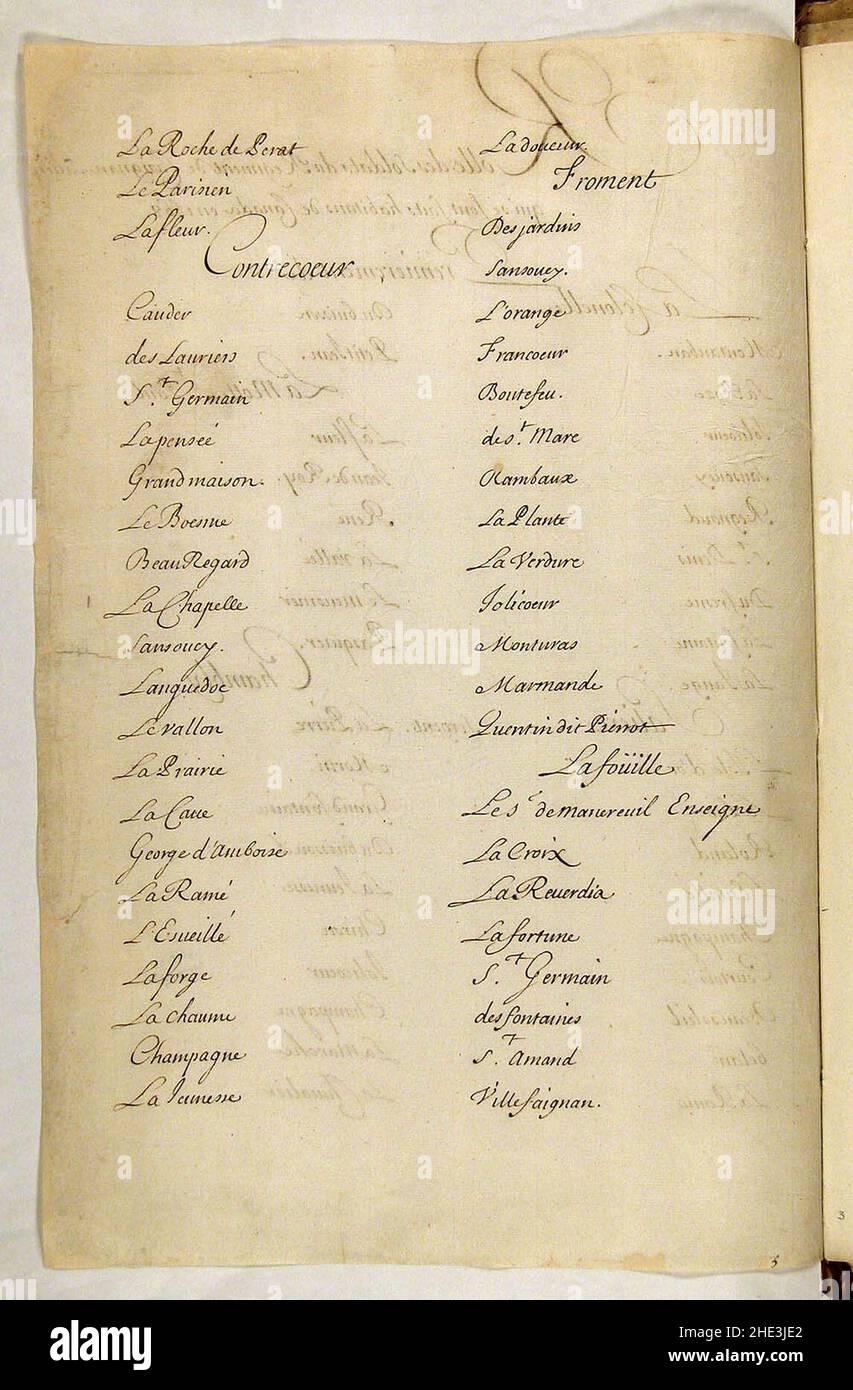 La Roche de Perat
Le Parisien
Lafleur.
Contrecoeur
Cauder
des Lauriers
S.t Germain
Lapenseé
Grandmaison.
Le Boesme
BeauRegard
La Chapelle
Sansoucy.
Languedoc
Levallon
La Prairie
La Caue
George d'Amboise
La Ramé
L'Esueillé
Laforge
La chaume
Champagne
La Jeunesse
Ladouceur.
Froment
Desjardins
Sansoucy.
L'orange
Francoeur
Boutefeu.
de s.t Marc
Rambaux
La Plante
La Verdure
Jolicoeur
Monturas
Marmande
Quentin dit Pierrot
Lafoüille
Le s.r de manereuil Enseigne
La Croix
La Reuerdia
Lafortune
S.t Germain
desfontaines
S.t Amand
Villefaignan.
5
3
alamy
Image ID: 2HE3JE2
www.alamy.com